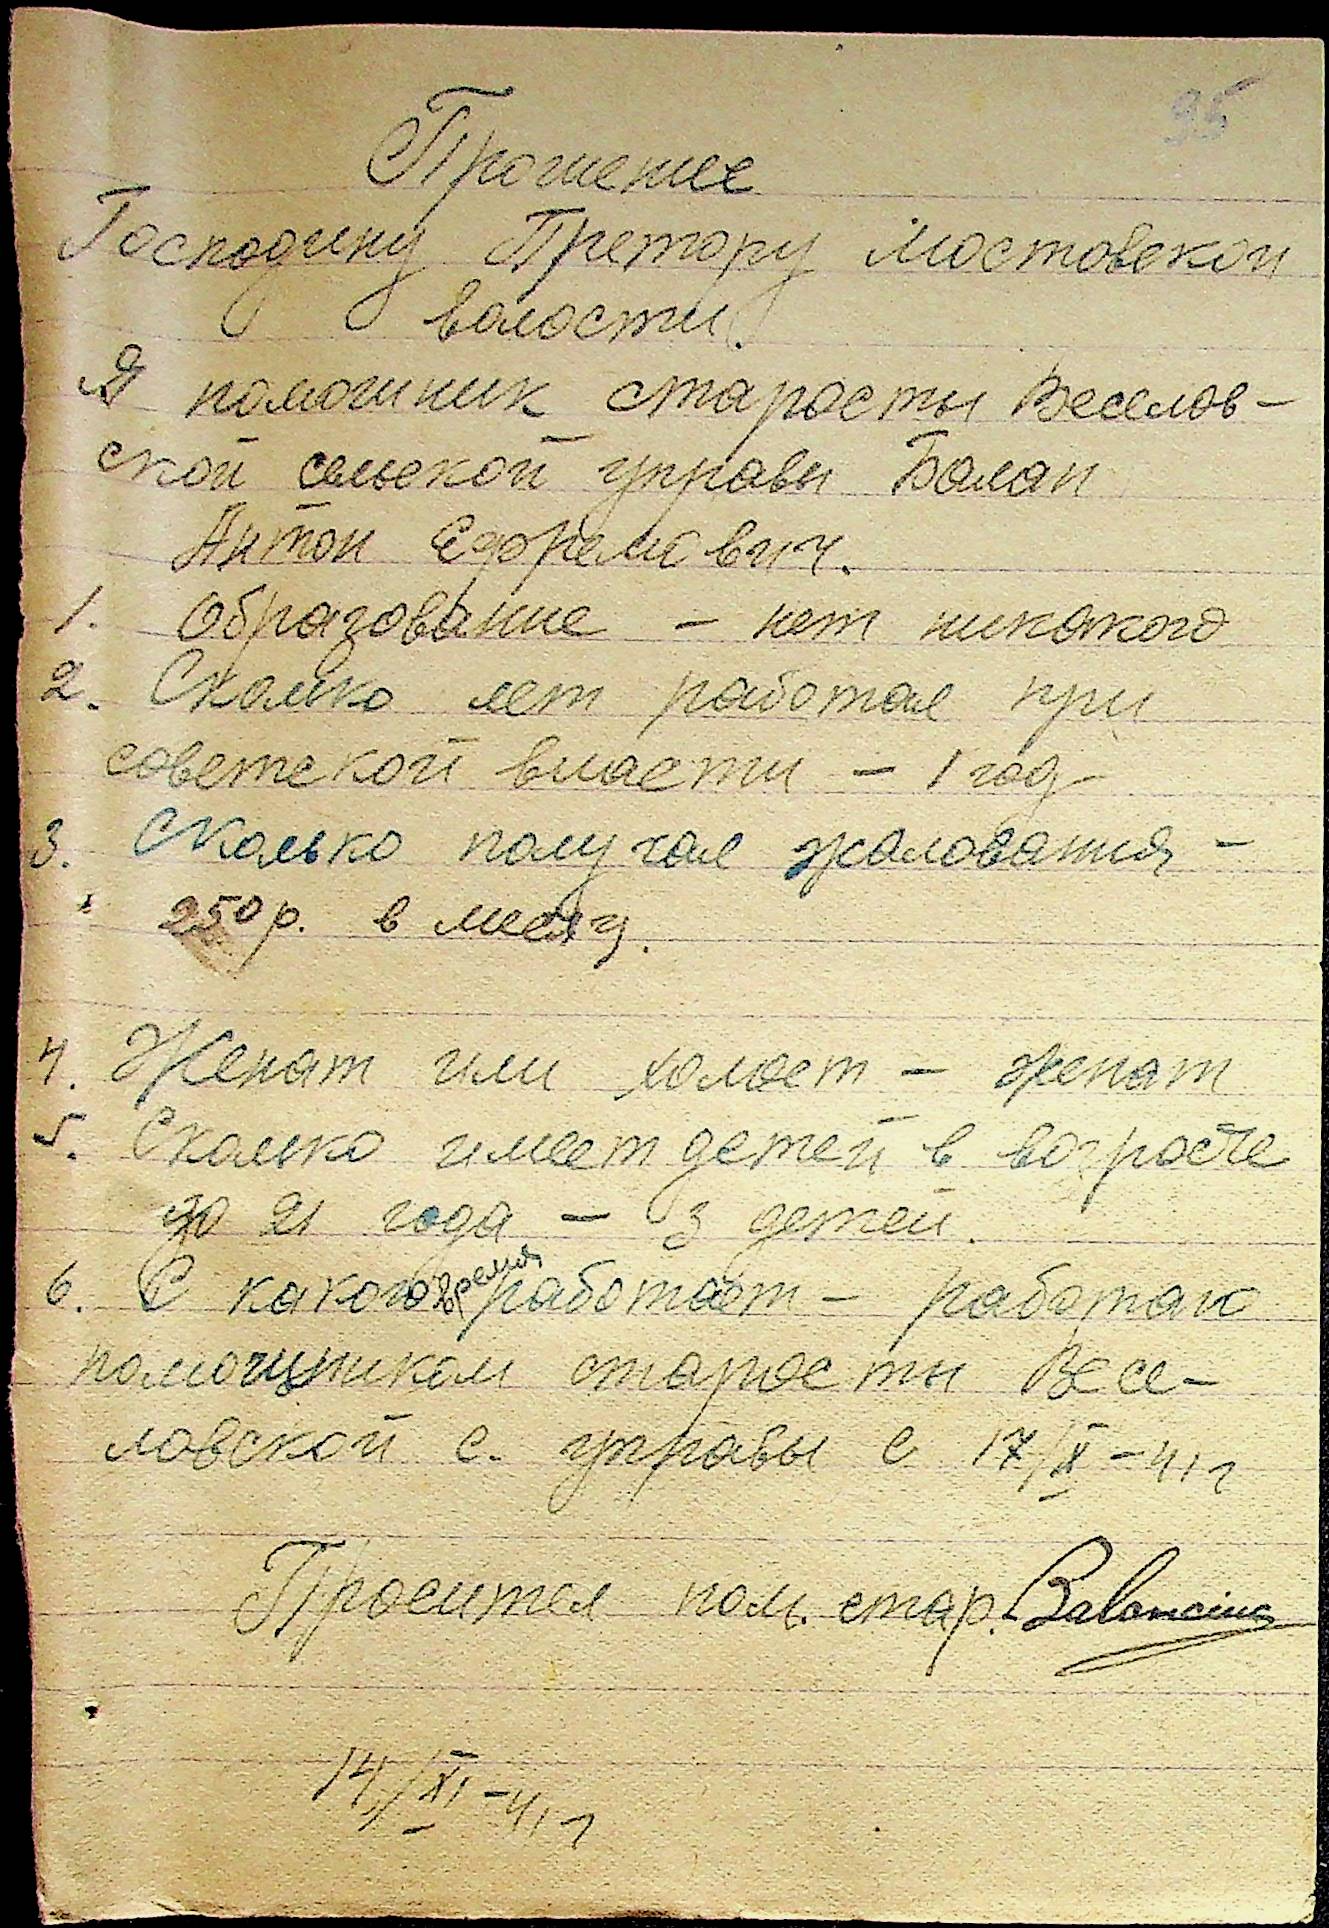 95
Прошение
Господину Претору Мостовской
волости.
Я помошник старосты Веселов-
ской сельской управы Балан
Антон Ефремович.
1. Образование - нет никакого
2. Сколько лет работал при
советской власти - 1 год
3. Сколько получал жалования -
250 р. в месяц.
4. Женат или холост - женат
5. Сколько имеет детей в возросте
до 21 года - 3 детей.
6. С какого время работает - работаю
помощником старосты Весе-
ловской с. управы с 17/X - 41 г
Просител пом. стар.
14/XI - 41 г